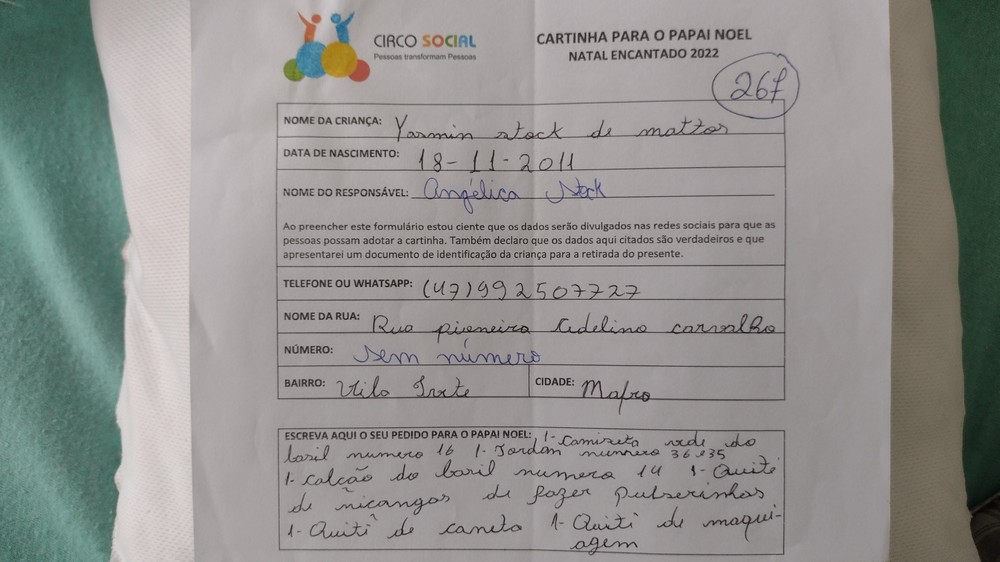 CIRCO SOCIAL
Pessoas transformam Pessoas
CARTINHA PARA O PAPAI NOEL
NATAL ENCANTADO 2022
267
NOME DA CRIANÇA: Yasmin stock de mattos
DATA DE NASCIMENTO: 18-11-2011
NOME DO RESPONSÁVEL: Angélica Stock
Ao preencher este formulário estou ciente que os dados serão divulgados nas redes sociais para que as
pessoas possam adotar a cartinha. Também declaro que os dados aqui citados são verdadeiros e que
apresentarei um documento de identificação da criança para a retirada do presente.
TELEFONE OU WHATSAPP: (47)992507727
NOME DA RUA: Rua pioneira Adelino carvalho
NÚMERO: Sem número
BAIRRO: Vila Ivete CIDADE: Mafra
ESCREVA AQUI O SEU PEDIDO PARA O PAPAI NOEL: 1-Camiseta do
basil numero 16 1-Jordan numero 36 35
1-calcão do basil numero 14 1-Quité
de niçangas de fazer pulserinhas
1-Quiti de caneta 1-Quiti de maqui-
agem